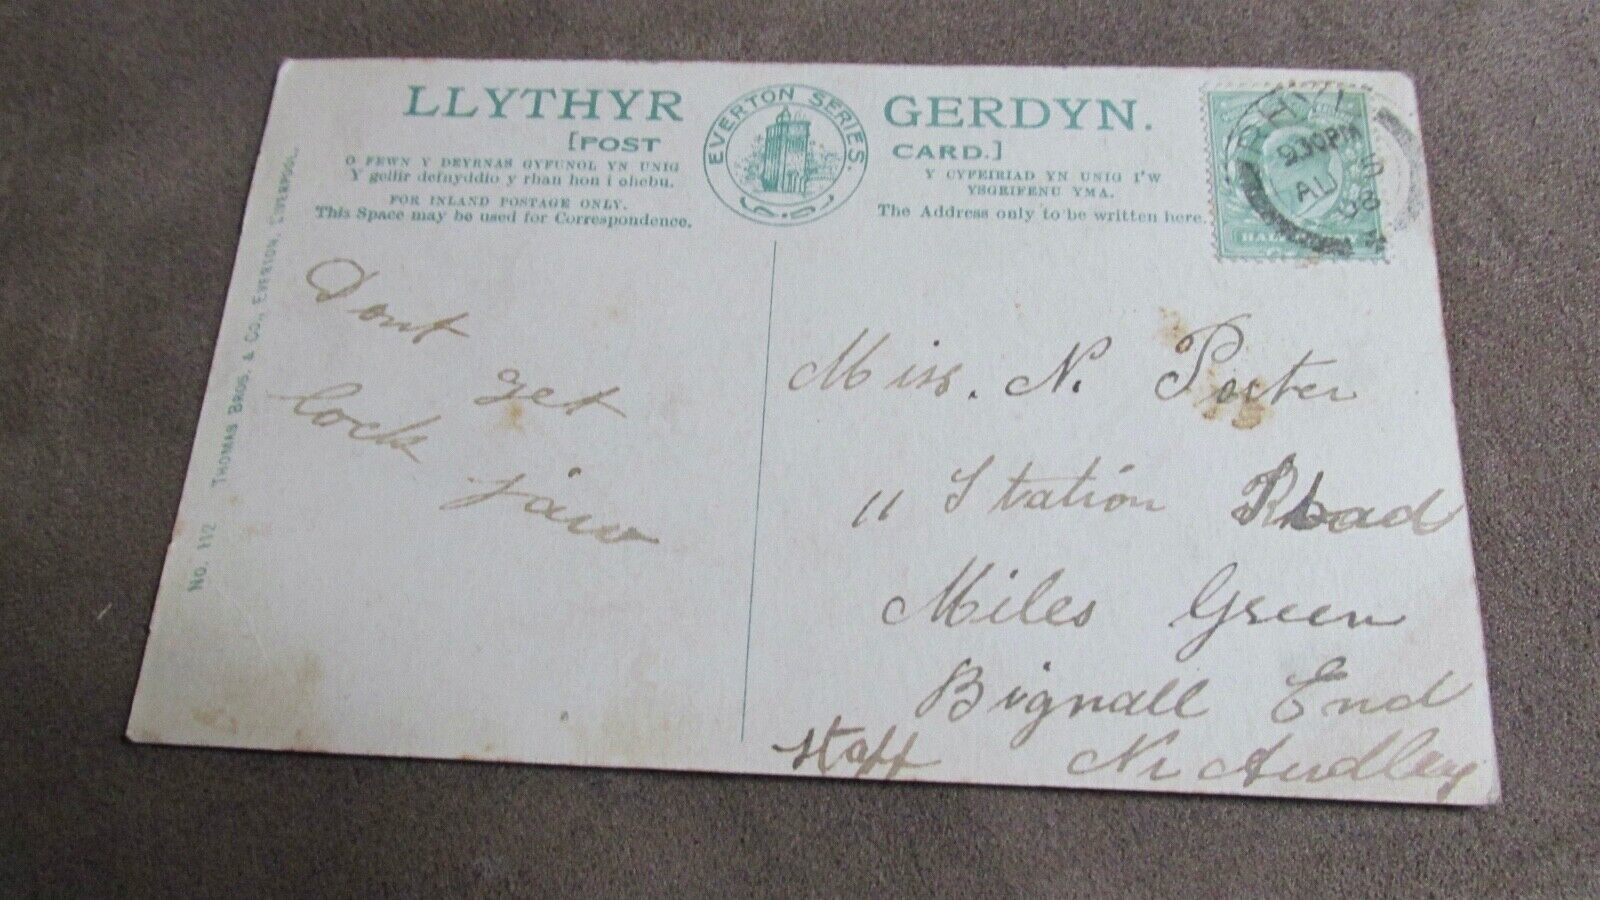 LLYTHYR GERDYN.
[POST CARD.]
EVERTON SERIES.
O FEWN Y DEYRNAS GYFUNOL YN UNIG
Y gellir defnyddio y rhan hon i ohebu.
FOR INLAND POSTAGE ONLY.
This Space may be used for Correspondence.
Y CYFEIRIAD YN UNIG I'W
YSGRIFENU YMA.
The Address only to be written here.
RHYL
9.30PM
AU 5
08
HALF
No. 112 THOMAS BROS. & CO., EVERTON, LIVERPOOL.
Dont
get
lock
jaw
Miss. N. Porter
11 Station Road
Miles Green
Bignall End
Staff Nr Audley